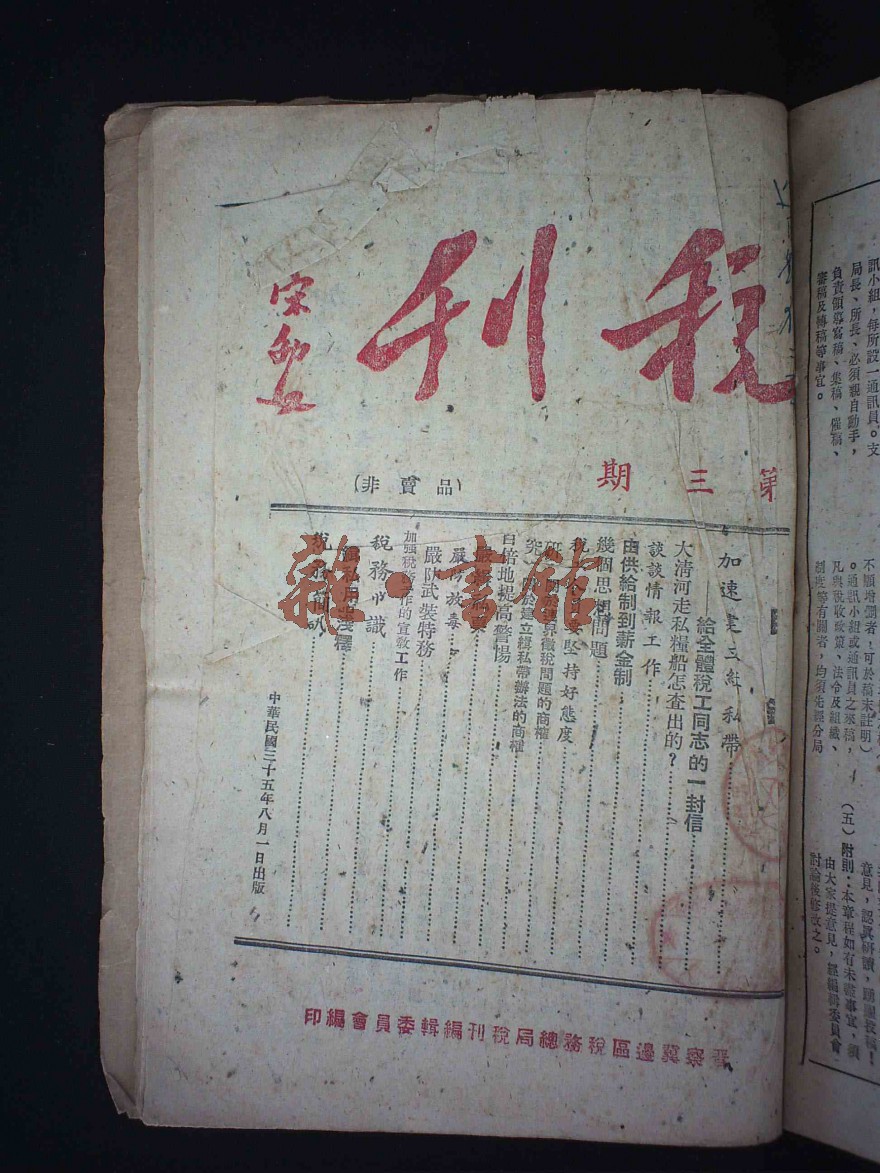 稅刊
宋劭文
第三期
(非賣品)
加速建立緝私帶
給全體稅工同志的一封信
大清河走私糧船怎查出的?
談談情報工作
由供給制到薪金制
幾個思想問題
堅持好態度
徵稅問題的商榷
建立緝私帶辦法的商榷
百倍地提高警惕
嚴防放毒
嚴防武裝特務
加強稅務工作的宣教工作
稅務小識
淺釋
稅務簡訊
中華民國三十五年八月一日出版
晉察冀邊區稅務總局稅刊編輯委員會編印
雜·書館
訊小組,每所設一通訊員。支
局長、所長、必須親自動手,
負責領導寫稿、集稿、催稿、
審稿及轉稿等事宜。
不願增删者,可於稿末註明)
。通訊小組或通訊員之來稿,
凡與稅收政策、法令及組織、
制度等有關者,均須先經分局
意見,認真研讀,踴躍投稿!
(五)附則:本章程如有未盡事宜,須
由大家提意見,經編輯委員會
討論後修改之。